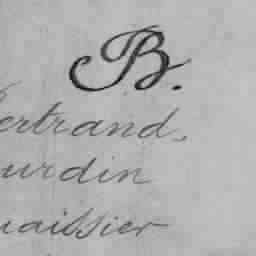 B.
ertrand.
urdin
uaissier